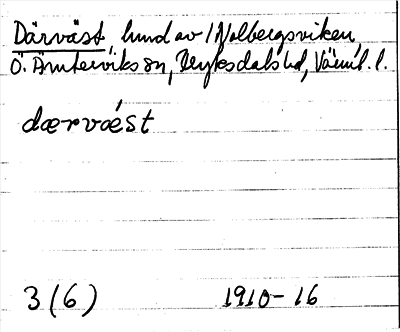 Därväst hmd av Nolbergsviken,
Ö. Ämterviks sn, Fryksdals hd, Värml. l.
dærvæst
3 (6) 1910-16